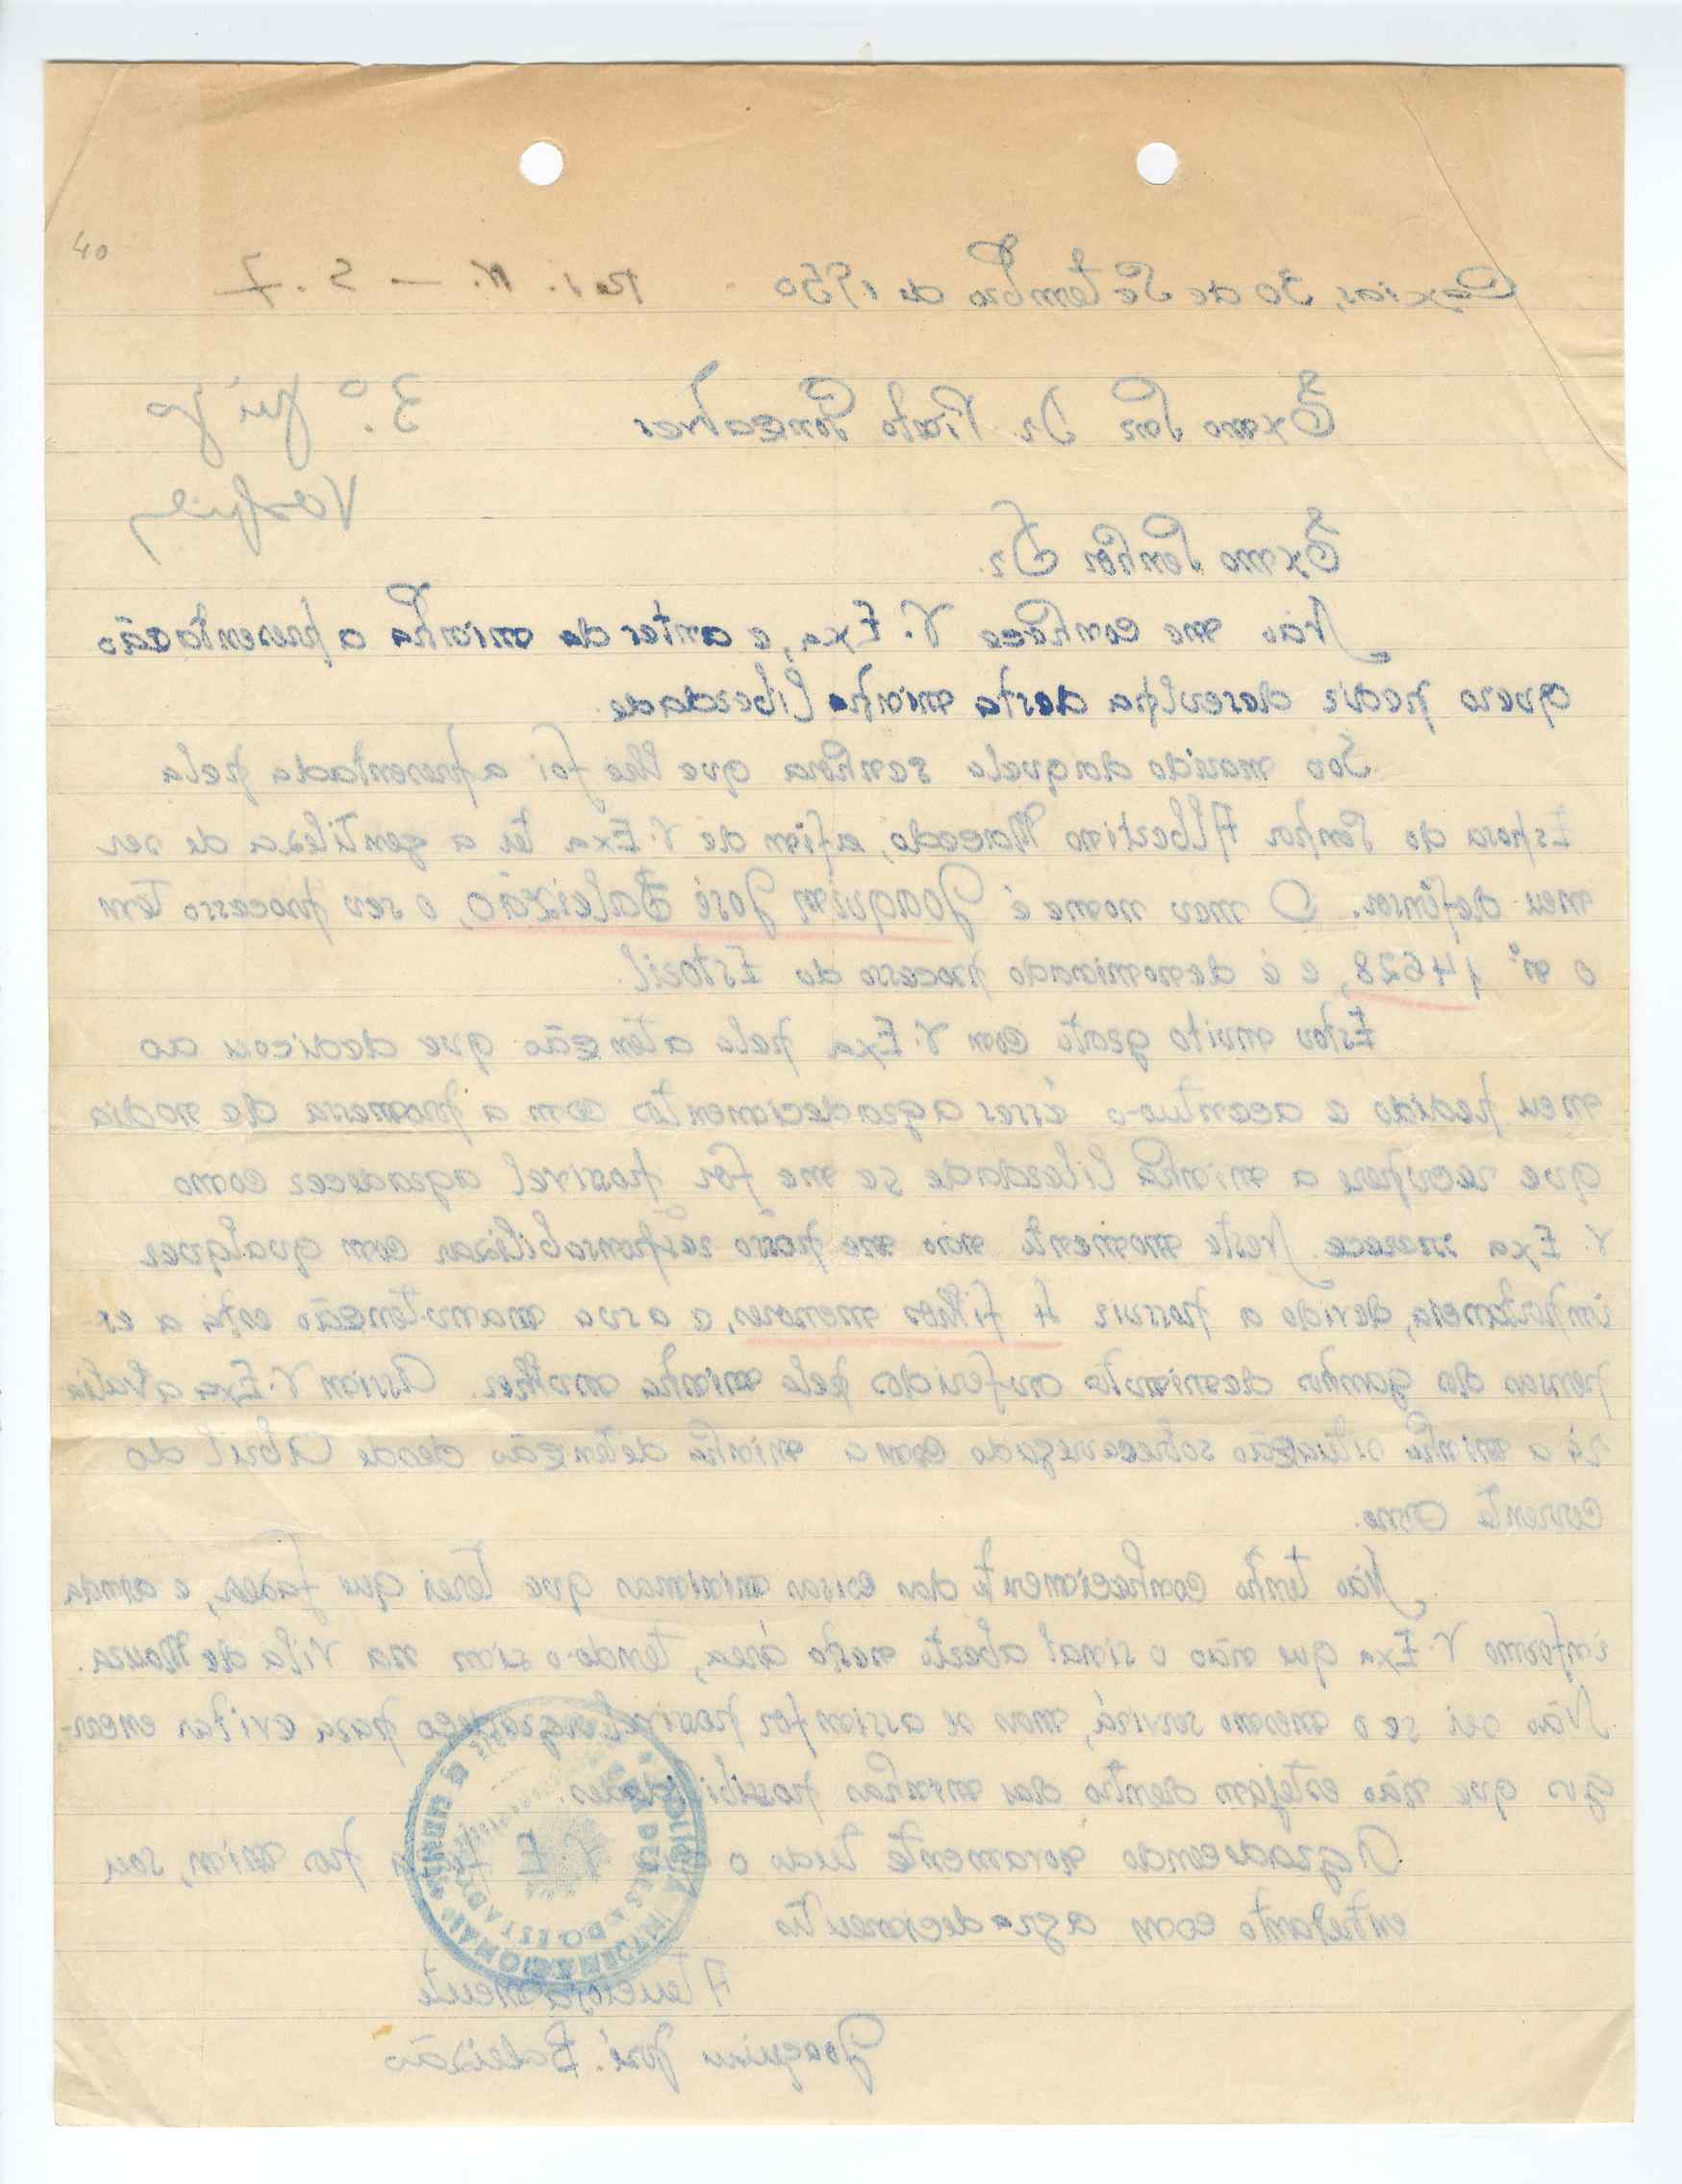 40
Caxias, 30 de Setembro de 1950
Exmo Snr Dr. Gonçalves
3.º juízo
Exmo Senhor Dr.
Não me conhece V. Exa, e antes da minha apresentação
quero pedir desculpa desta minha liberdade.
Sou marido daquela senhora que lhe foi apresentada pela
Esposa do Senhor Albertino Macedo, afim de V. Exa ter a gentileza de ser
meu defensor. O meu nome é Joaquim José Baleizão, o seu processo tem
o nº 14628, e é denominado processo do Estoril.
Estou muito grato com V. Exa pela atenção que dedicou ao
meu pedido e acentuo-o êsses agradecimentos com a promessa de no dia
que recupere a minha liberdade se me fôr possivel agradecer como
V. Exa merece. Neste momento não me posso responsabilizar com qualquer
importancia, devido a possuir 4 filhos menores, e a sua manutenção está a es
pensas do ganho deminuto auferido pela minha mulher. Assim V. Exa avalia
rá a minha situação sobrecarregada com a minha detenção desde Abril do
corrente ano.
Não tenho conhecimento das coisas minimas que terei que fazer, e ainda
informo V. Exa que não o sinal aberto nesta área, tendo-o sim na Vila de Moura.
Não sei se o mesmo servirá, mas se assim for possivel para evitar encar-
gos que não estejam dentro das minhas possibilidades.
Agradecendo novamente tudo o que V. E por mim, sou,
entretanto com agradecimento
Atenciosamente
Joaquim José Baleizão
POLICIA INTERNACIONAL E DE DEFESA DO ESTADO